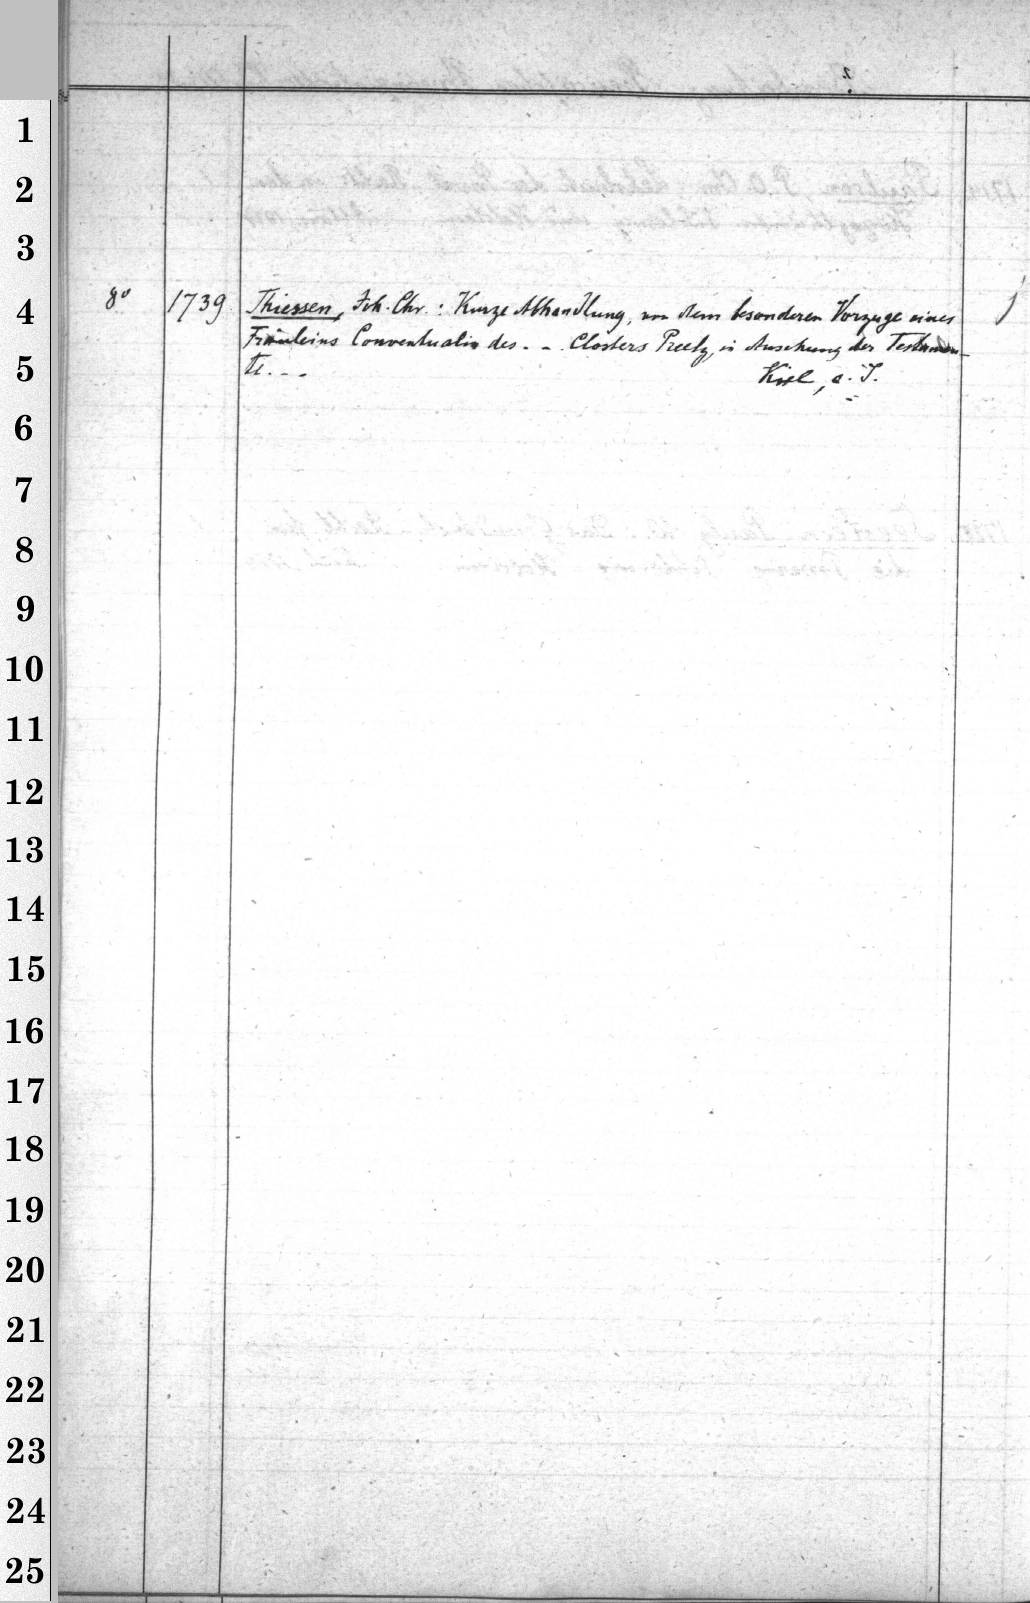 1
2
3
4
8° 1739 Thiessen, Joh. Chr.: Kurze Abhandlung, von dem besonderen Vorzuge eines
Fräuleins Conventualin des . . . Closters Preetz, in Ansehung der Testamen-
5
te. . . .
Kiel, o. J.
6
7
8
9
10
11
12
13
14
15
16
17
18
19
20
21
22
23
24
25